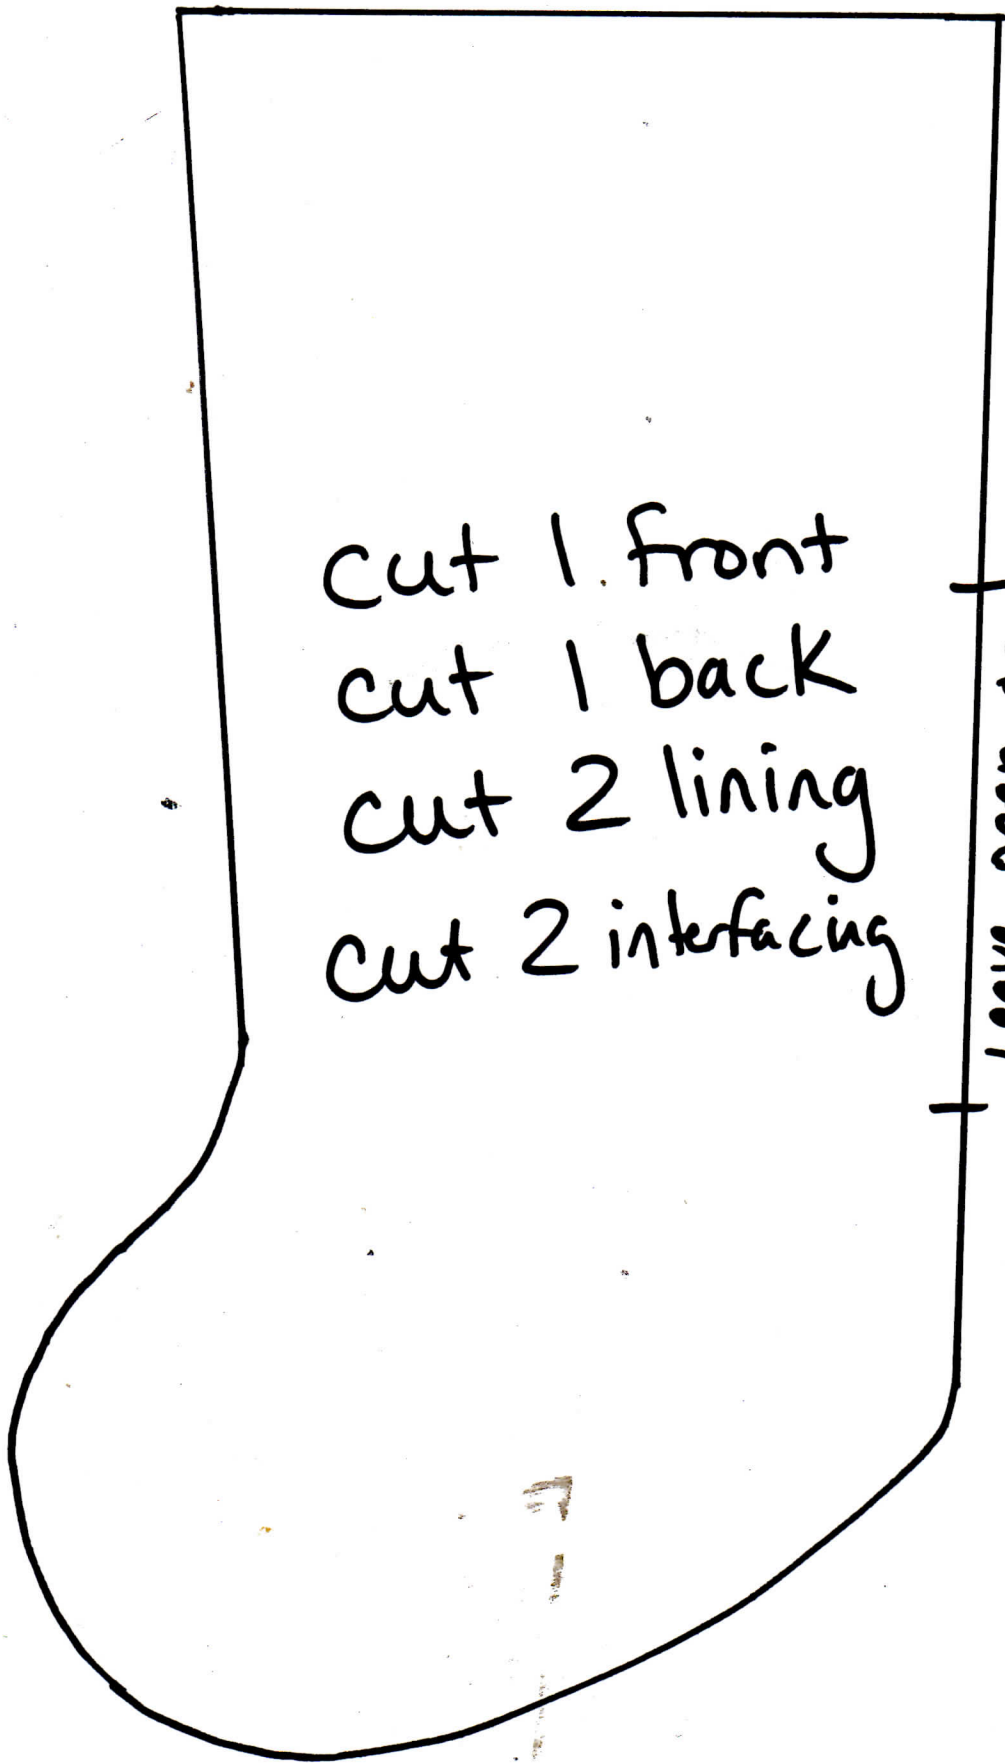 cut 1 front
cut 1 back
cut 2 lining
cut 2 interfacing
Leave open